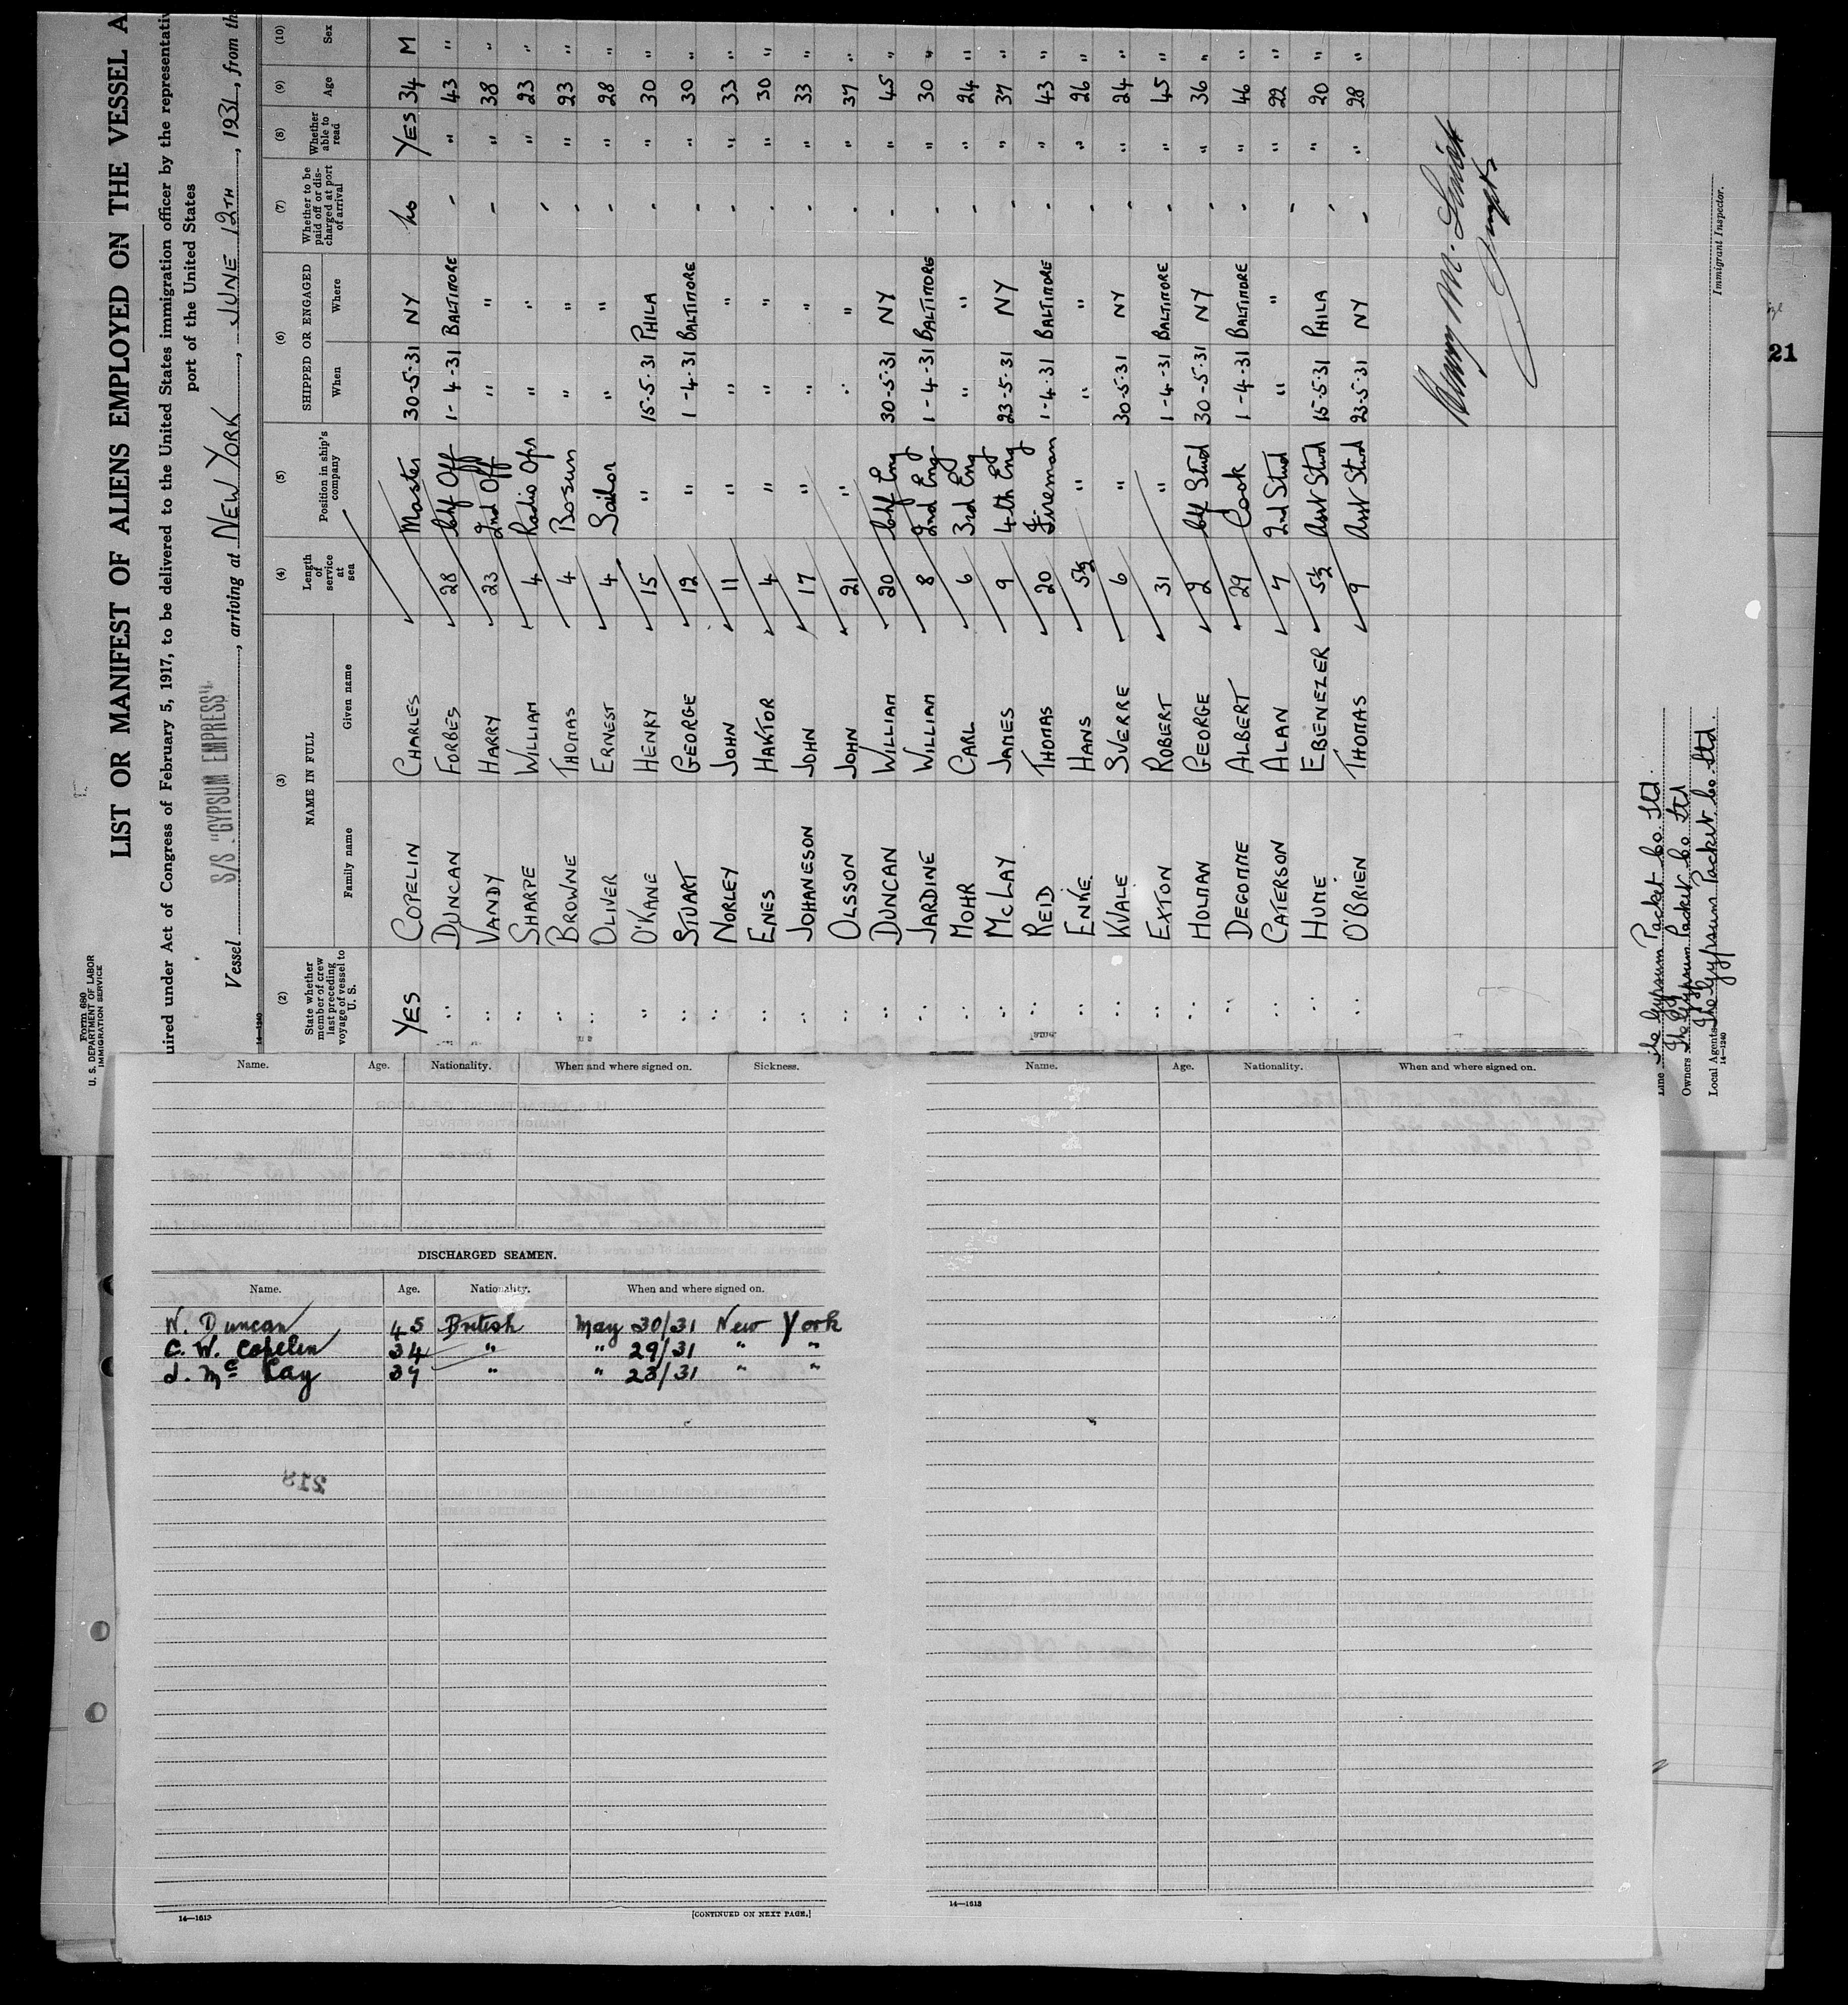 Form 680
U. S. DEPARTMENT OF LABOR
IMMIGRATION SERVICE
LIST OR MANIFEST OF ALIENS EMPLOYED ON THE VESSEL A
uired under Act of Congress of February 5, 1917, to be delivered to the United States immigration officer by the representativ
port of the United States
Vessel S/S "GYPSUM EMPRESS", arriving at NEW YORK, JUNE 12TH, 1931, from th
14—1240
(2) (3) (4) (5) (6) (7) (8) (9) (10)
State whether member of crew last preceding voyage of vessel to U. S. NAME IN FULL Family name Given name Length of service at sea Position in ship's company SHIPPED OR ENGAGED When Where Whether to be paid off or discharged at port of arrival Whether able to read Age Sex
YES COPELIN CHARLES Master 30-5-31 NY No YES 34 M
" DUNCAN FORBES 28 Chf Off 1-4-31 BALTIMORE - " 43 "
" VANDY HARRY 23 2nd Off " " - " 38 "
" SHARPE WILLIAM 4 Radio Opr " " - " 23 "
" BROWNE THOMAS 4 Bosun " " - " 23 "
" OLIVER ERNEST 4 Sailor " " - " 28 "
" O'KANE HENRY 15 " 15-5-31 PHILA - " 30 "
" STUART GEORGE 12 " 1-4-31 BALTIMORE - " 30 "
" NORLEY JOHN 11 " " " - " 33 "
" ENES HAKTOR 4 " " " - " 30 "
" JOHANESON JOHN 17 " " " - " 33 "
" OLSSON JOHN 21 " " " - " 37 "
" DUNCAN WILLIAM 20 Chf Eng 30-5-31 NY - " 45 "
" JARDINE WILLIAM 8 2nd Eng 1-4-31 BALTIMORE - " 30 "
" MOHR CARL 6 3rd Eng " " - " 24 "
" McLAY JAMES 9 4th Eng 23-5-31 NY - " 37 "
" REID THOMAS 20 Fireman 1-4-31 BALTIMORE - " 43 "
" ENKE HANS 5½ " " " - " 26 "
" KVALE SVERRE 6 " 30-5-31 NY - " 24 "
" EXTON ROBERT 31 " 1-4-31 BALTIMORE - " 45 "
" HOLMAN GEORGE 2 Chf Stud 30-5-31 NY - " 36 "
" DEGOMME ALBERT 29 Cook 1-4-31 BALTIMORE - " 46 "
" CATERSON ALAN 7 2nd Stud " " - " 22 "
" HUME EBENEZER 5½ Asst Stud 15-5-31 PHILA - " 20 "
" O'BRIEN THOMAS 9 Asst Stud 23-5-31 NY - " 28 "
Immigrant Inspector.
Line The Gypsum Packet Co. Ltd.
Owners The Gypsum Packet Co Ltd
Local Agents The Gypsum Packet Co. Ltd.
14—1240
21
Name. Age. Nationality. When and where signed on. Sickness.
DISCHARGED SEAMEN.
Name. Age. Nationality. When and where signed on.
W. Duncan 45 British May 30/31 New York
C. W. Copelin 34 " " 29/31 " "
J. Mc Lay 37 " " 23/31 " "
218
14—1613
[CONTINUED ON NEXT PAGE.]
Name. Age. Nationality. When and where signed on.
14—1613